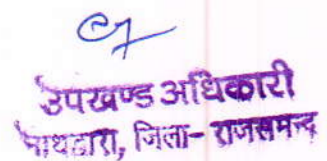 उपखण्ड अधिकारी
नाथद्वारा, जिला- राजसमन्द